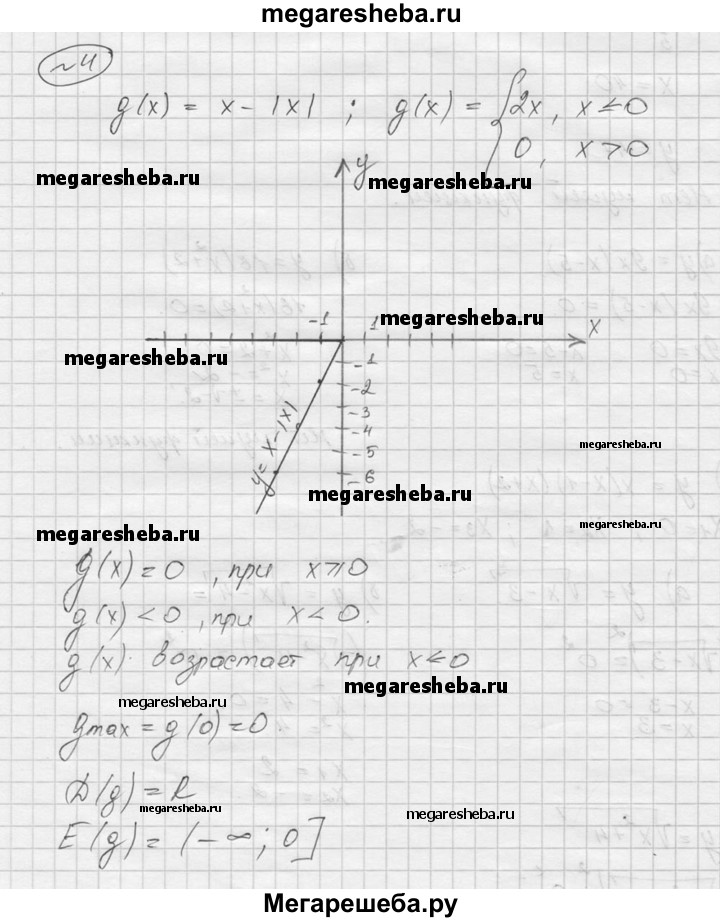 megaresheba.ru
№4
g(x) = x - |x| ; g(x) = { 2x, x ≤ 0
0, x > 0
megaresheba.ru
megaresheba.ru
y
-1 1
megaresheba.ru
x
megaresheba.ru
-1
-2
-3
-4
-5
-6
y = x - |x|
megaresheba.ru
megaresheba.ru
megaresheba.ru
megaresheba.ru
g(x) = 0, при x ≥ 0
g(x) < 0, при x < 0.
g(x) возрастает при x ≤ 0
megaresheba.ru
megaresheba.ru
gmax = g(0) = 0
D(g) = R
megaresheba.ru
megaresheba.ru
E(g) = (-∞; 0]
Мегарешеба.ру